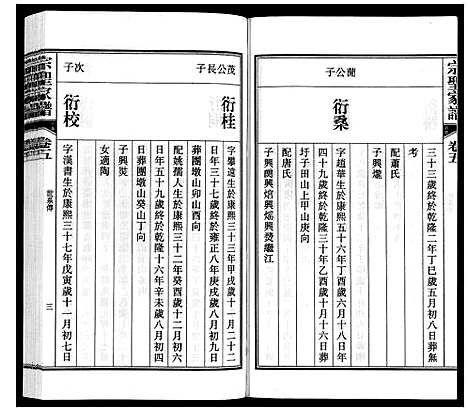 宗聖家譜
卷五
三十三歲終於乾隆二年丁巳五月初八日葬無
考
配蕭氏
子興爖
蘭公子
衍桑
字趙華生於康熙五十六年丁酉歲六月十八日年
四十九歲終於乾隆三十年乙酉歲十月十六日葬
圩子田山上甲山庚向
配唐氏
茂公長子
衍桂
字攀遠生於康熙三十三年甲戌歲十一月二十二
日年三十七歲終於雍正八年庚戌歲八月初九日
葬團墩山卯山酉向
配姚孺人生於康熙三十二年癸酉歲十二月初六
日年五十九歲終於乾隆十六年辛未歲八月初四
日葬團墩山癸山丁向
子興
女適陶
次子
衍校
字漢書生於康熙三十七年戊寅歲十一月初七日
宗聖家譜
卷五
世系傳
三